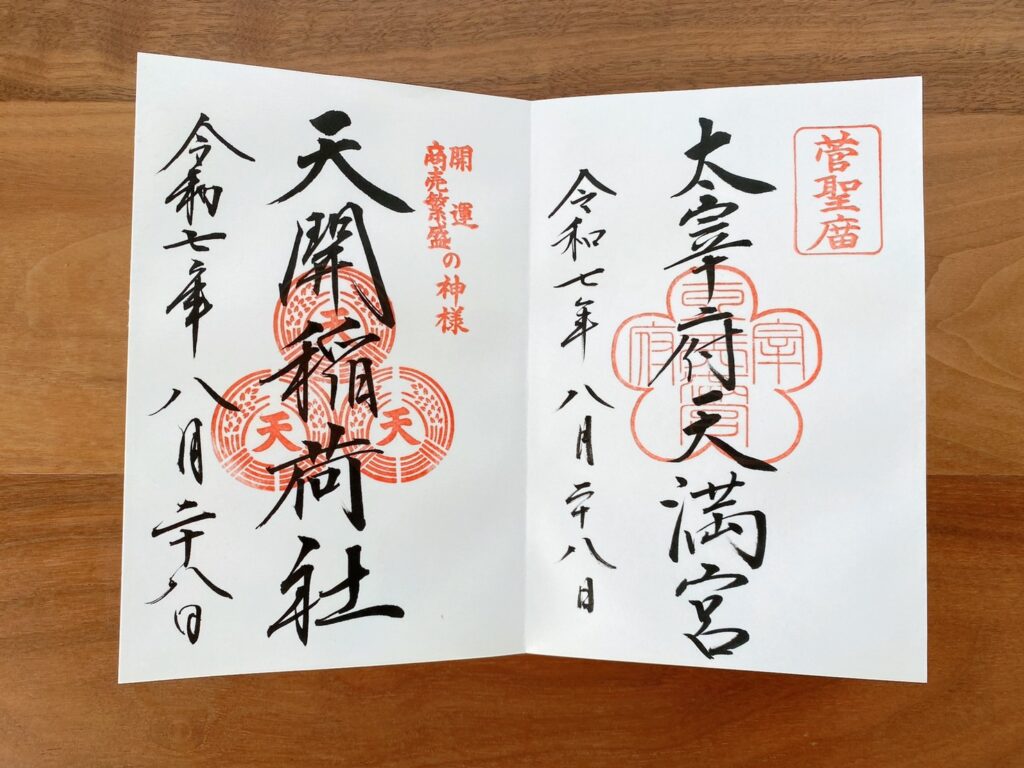 菅聖庿
太宰府天満宮
令和七年 八月二十八日
開運
商売繁盛の神様
天開稲荷社
天
天
天
令和七年 八月二十八日